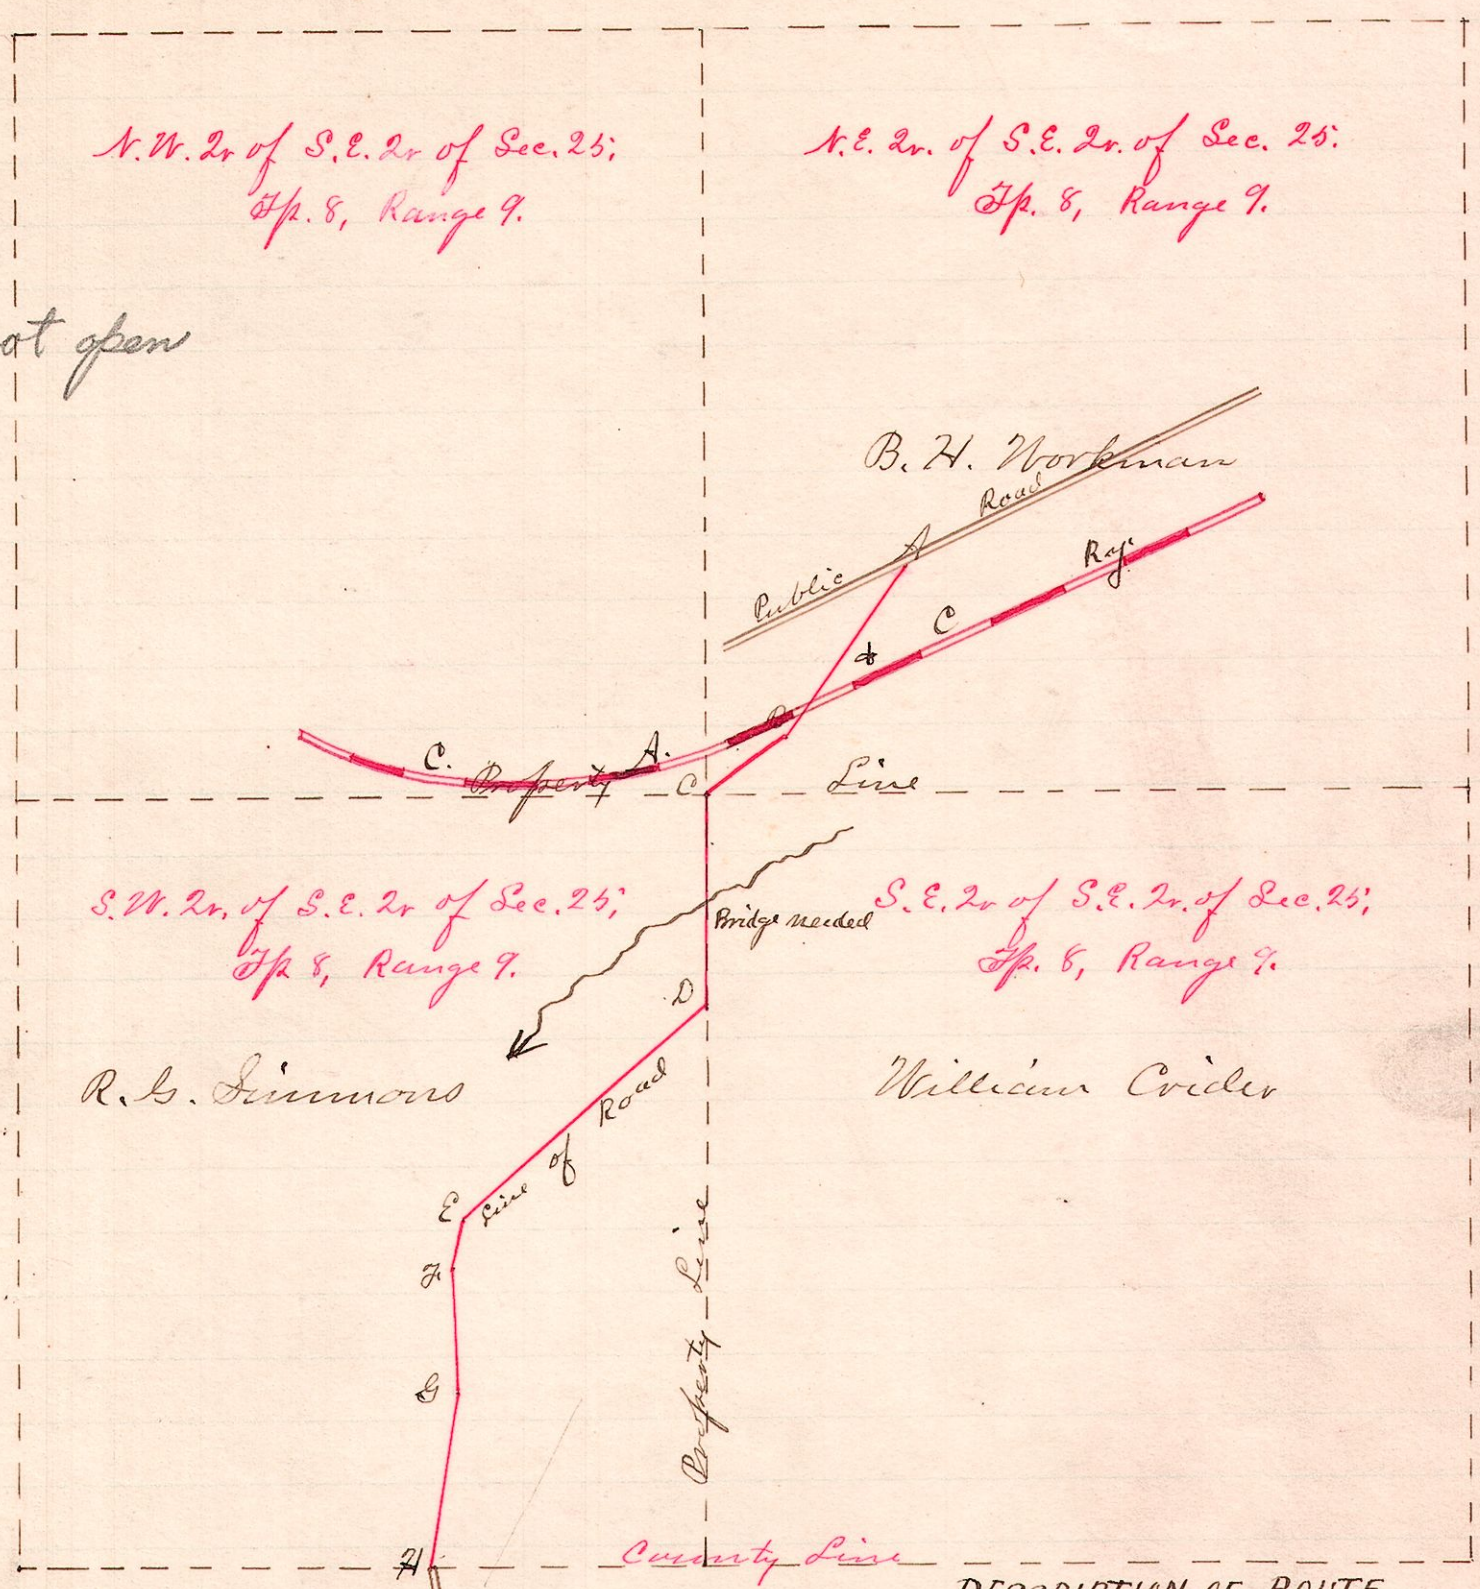 N.W. Qr of S.E. Qr of Sec. 25;
Tp. 8, Range 9.
N.E. Qr. of S.E. Qr. of Sec. 25.
Tp. 8, Range 9.
ot open
B. H. Workman
Public Road
A
C. A. & C Ry.
B
Property Line
C
S.W. Qr. of S.E. Qr of Sec. 25;
Tp 8, Range 9.
Bridge needed
S.E. Qr of S.E. Qr. of Sec. 25;
Tp. 8, Range 9.
D
R. G. Simmons
William Crider
Line of Road
E
F
G
Property Line
H
County Line
DESCRIPTION OF ROUTE